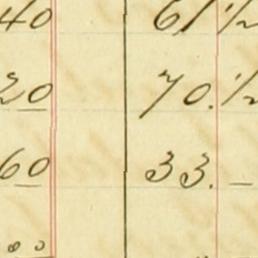 40 61 1/2
20 70. 1/2
60 33. —